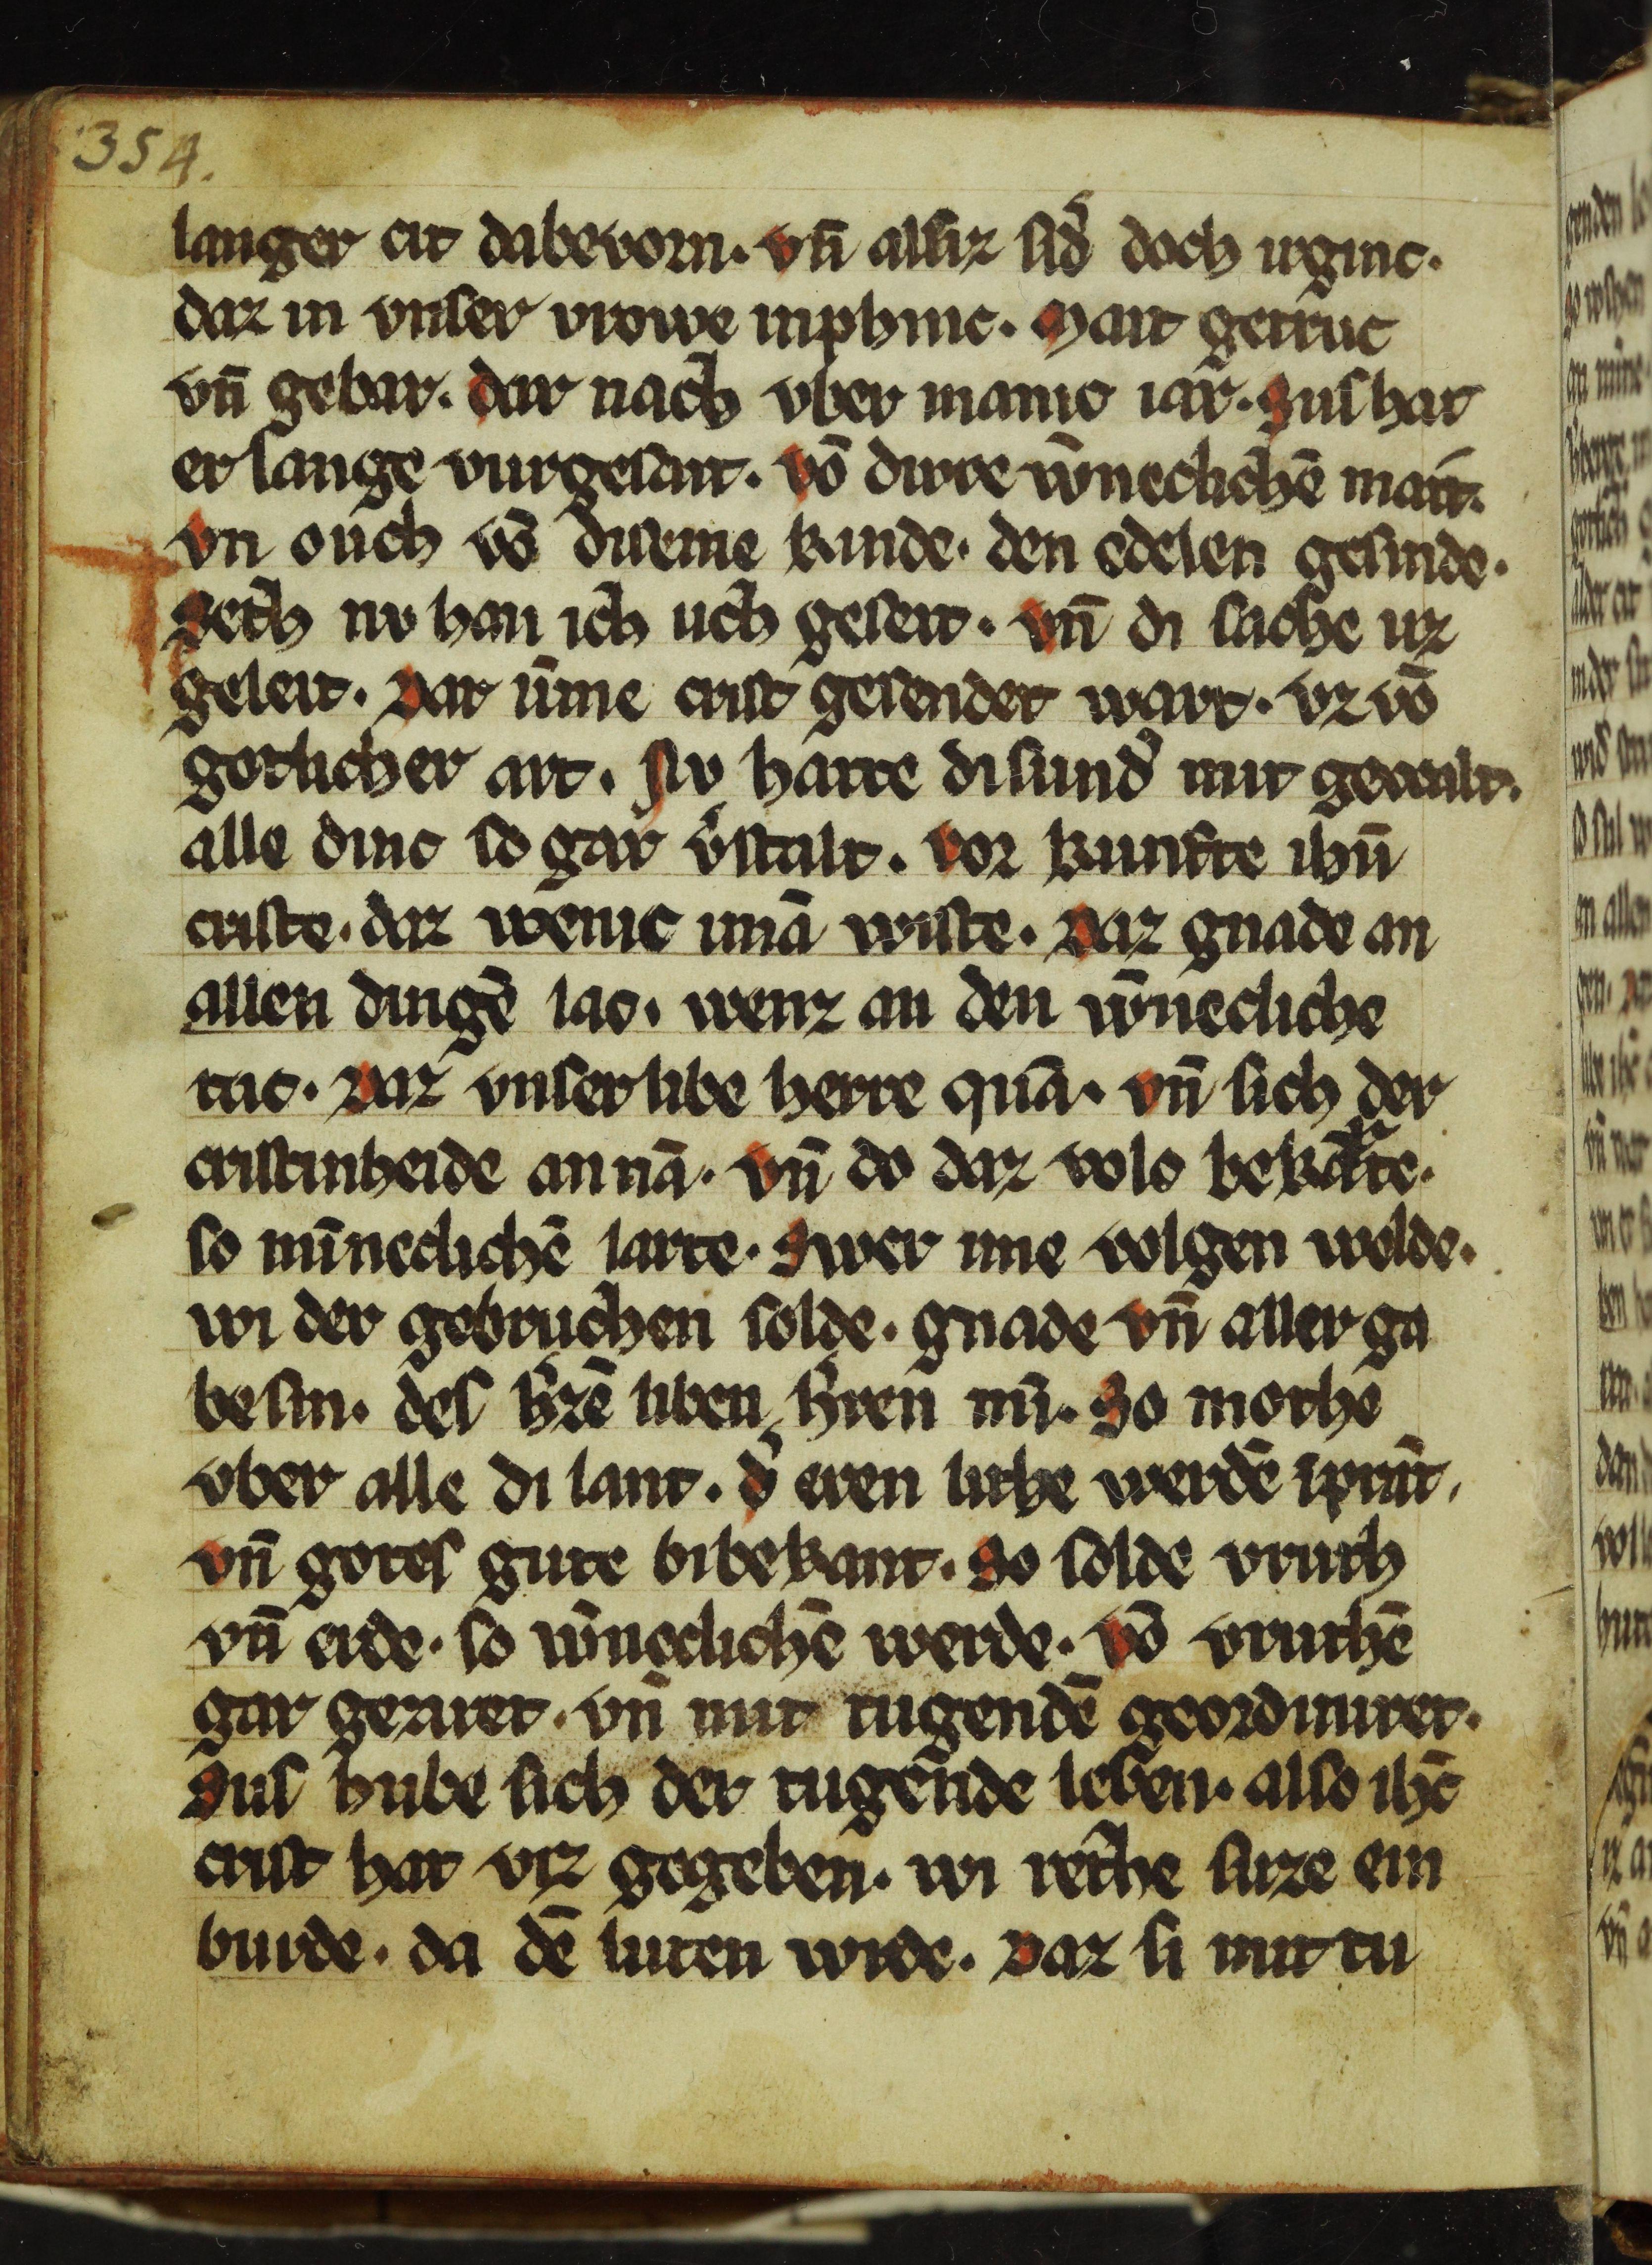 354.
langer cit dabevorn. vn̄ alsiz sid̕ doch irginc.
daz in vnser vrowe inphinc. Mait getruc
vn̄ gebar. dar nach vber manic iar. Sus hat
er lange vurgesait. vō dirre w̄neclichē mait.
vn ouch vō diseme kinde. den edelen gesinde.
Seth nv han ich uch geseit. vn̄ di sache uz
geleit. Dar ūme crist gesendet wart. vz vō
gotlicher art. Nv hatte di sund̕ mit gewalt.
alle dinc so gar v̕stalt. vor kunfte ihū
criste. daz wenic imā wiste. Daz gnade an
allen dingē lac. wenz an den w̄necliche
tac. Daz vnser libe herre quā. vn̄ sich der
cristinheide an nā. vn̄ do daz volc bekarte.
so mīneclichē larte. Swer ime volgen wolde.
wi der gebruchen solde. gnade vn̄ aller ga
be sin. des h̕zē liben h̕ren mī. So mothe
vber alle di lant. d̕ eren lithe werdē ipnāt.
vn̄ gotes gute bi bekant. So solde vruth
vn̄ erde. so w̄neclichē werde. vō vruthē
gar geziret. vn̄ mit tugendē geordiniret.
Sus hube sich der tugende leben. also ihc̄
crist hat virz gegeben. wi rethe suze ein
burde. da dē luten wrde. Daz si mit tu